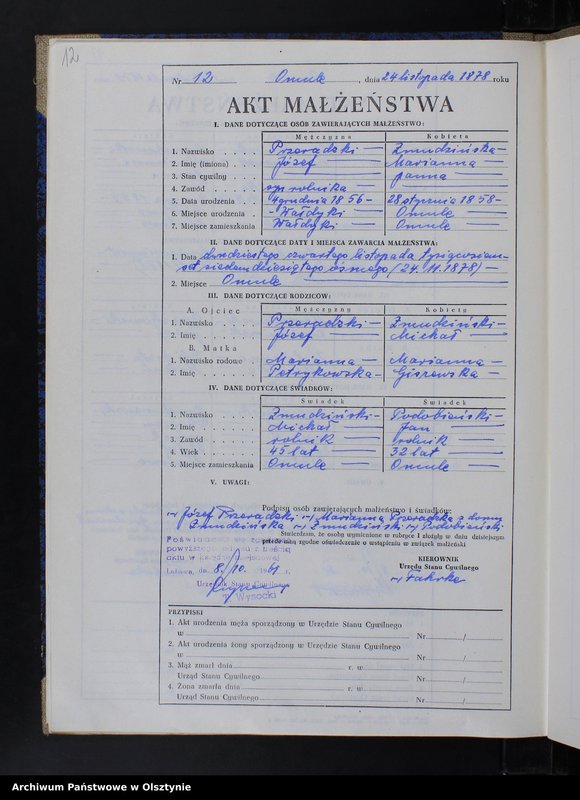 12
Nr 12 Omule, dnia 24 listopada 1878 roku
AKT MAŁŻEŃSTWA
I. DANE DOTYCZĄCE OSÓB ZAWIERAJĄCYCH MAŁŻEŃSTWO:
Mężczyzna Kobieta
1. Nazwisko Przeradzki Żmudzińska
2. Imię (imiona) Józef Marianna
3. Stan cywilny — panna
4. Zawód syn rolnika —
5. Data urodzenia 4 grudnia 1856 28 stycznia 1858
6. Miejsce urodzenia Wałdyki Omule
7. Miejsce zamieszkania Wałdyki Omule
II. DANE DOTYCZĄCE DATY I MIEJSCA ZAWARCIA MAŁŻEŃSTWA:
1. Data dwudziestego czwartego listopada tysiącosiem-
set siedemdziesiątego ósmego (24.11.1878)
2. Miejsce Omule
III. DANE DOTYCZĄCE RODZICÓW:
A. Ojciec Mężczyzny Kobiety
1. Nazwisko Przeradzki Żmudziński
2. Imię Józef Michał
B. Matka
1. Nazwisko rodowe Marianna Marianna
2. Imię Petrykowska Giszewska
IV. DANE DOTYCZĄCE ŚWIADKÓW:
Świadek Świadek
1. Nazwisko Żmudziński Podobieński
2. Imię Michał Jan
3. Zawód rolnik rolnik
4. Wiek 45 lat 32 lat
5. Miejsce zamieszkania Omule Omule
V. UWAGI:
Podpisy osób zawierających małżeństwo i świadków:
Józef Przeradzki Marianna Przeradzka z domu
Żmudzińska Żmudziński Podobieński
Stwierdzam, że osoby wymienione w rubryce I złożyły w dniu dzisiejszym
przede mną zgodne oświadczenie o wstąpieniu w związek małżeński
Poświadczam zgodność
powyższego z treścią
aktu w księdze
dn. 8/10. 1961 r.
Urzędnik Stanu Cywilnego
Wysocki
KIEROWNIK
Urzędu Stanu Cywilnego
PRZYPISKI
1. Akt urodzenia męża sporządzony w Urzędzie Stanu Cywilnego
w Nr /
2. Akt urodzenia żony sporządzony w Urzędzie Stanu Cywilnego
w Nr /
3. Mąż zmarł dnia r. w
Urząd Stanu Cywilnego Nr /
4. Żona zmarła dnia r. w
Urząd Stanu Cywilnego Nr /
Archiwum Państwowe w Olsztynie